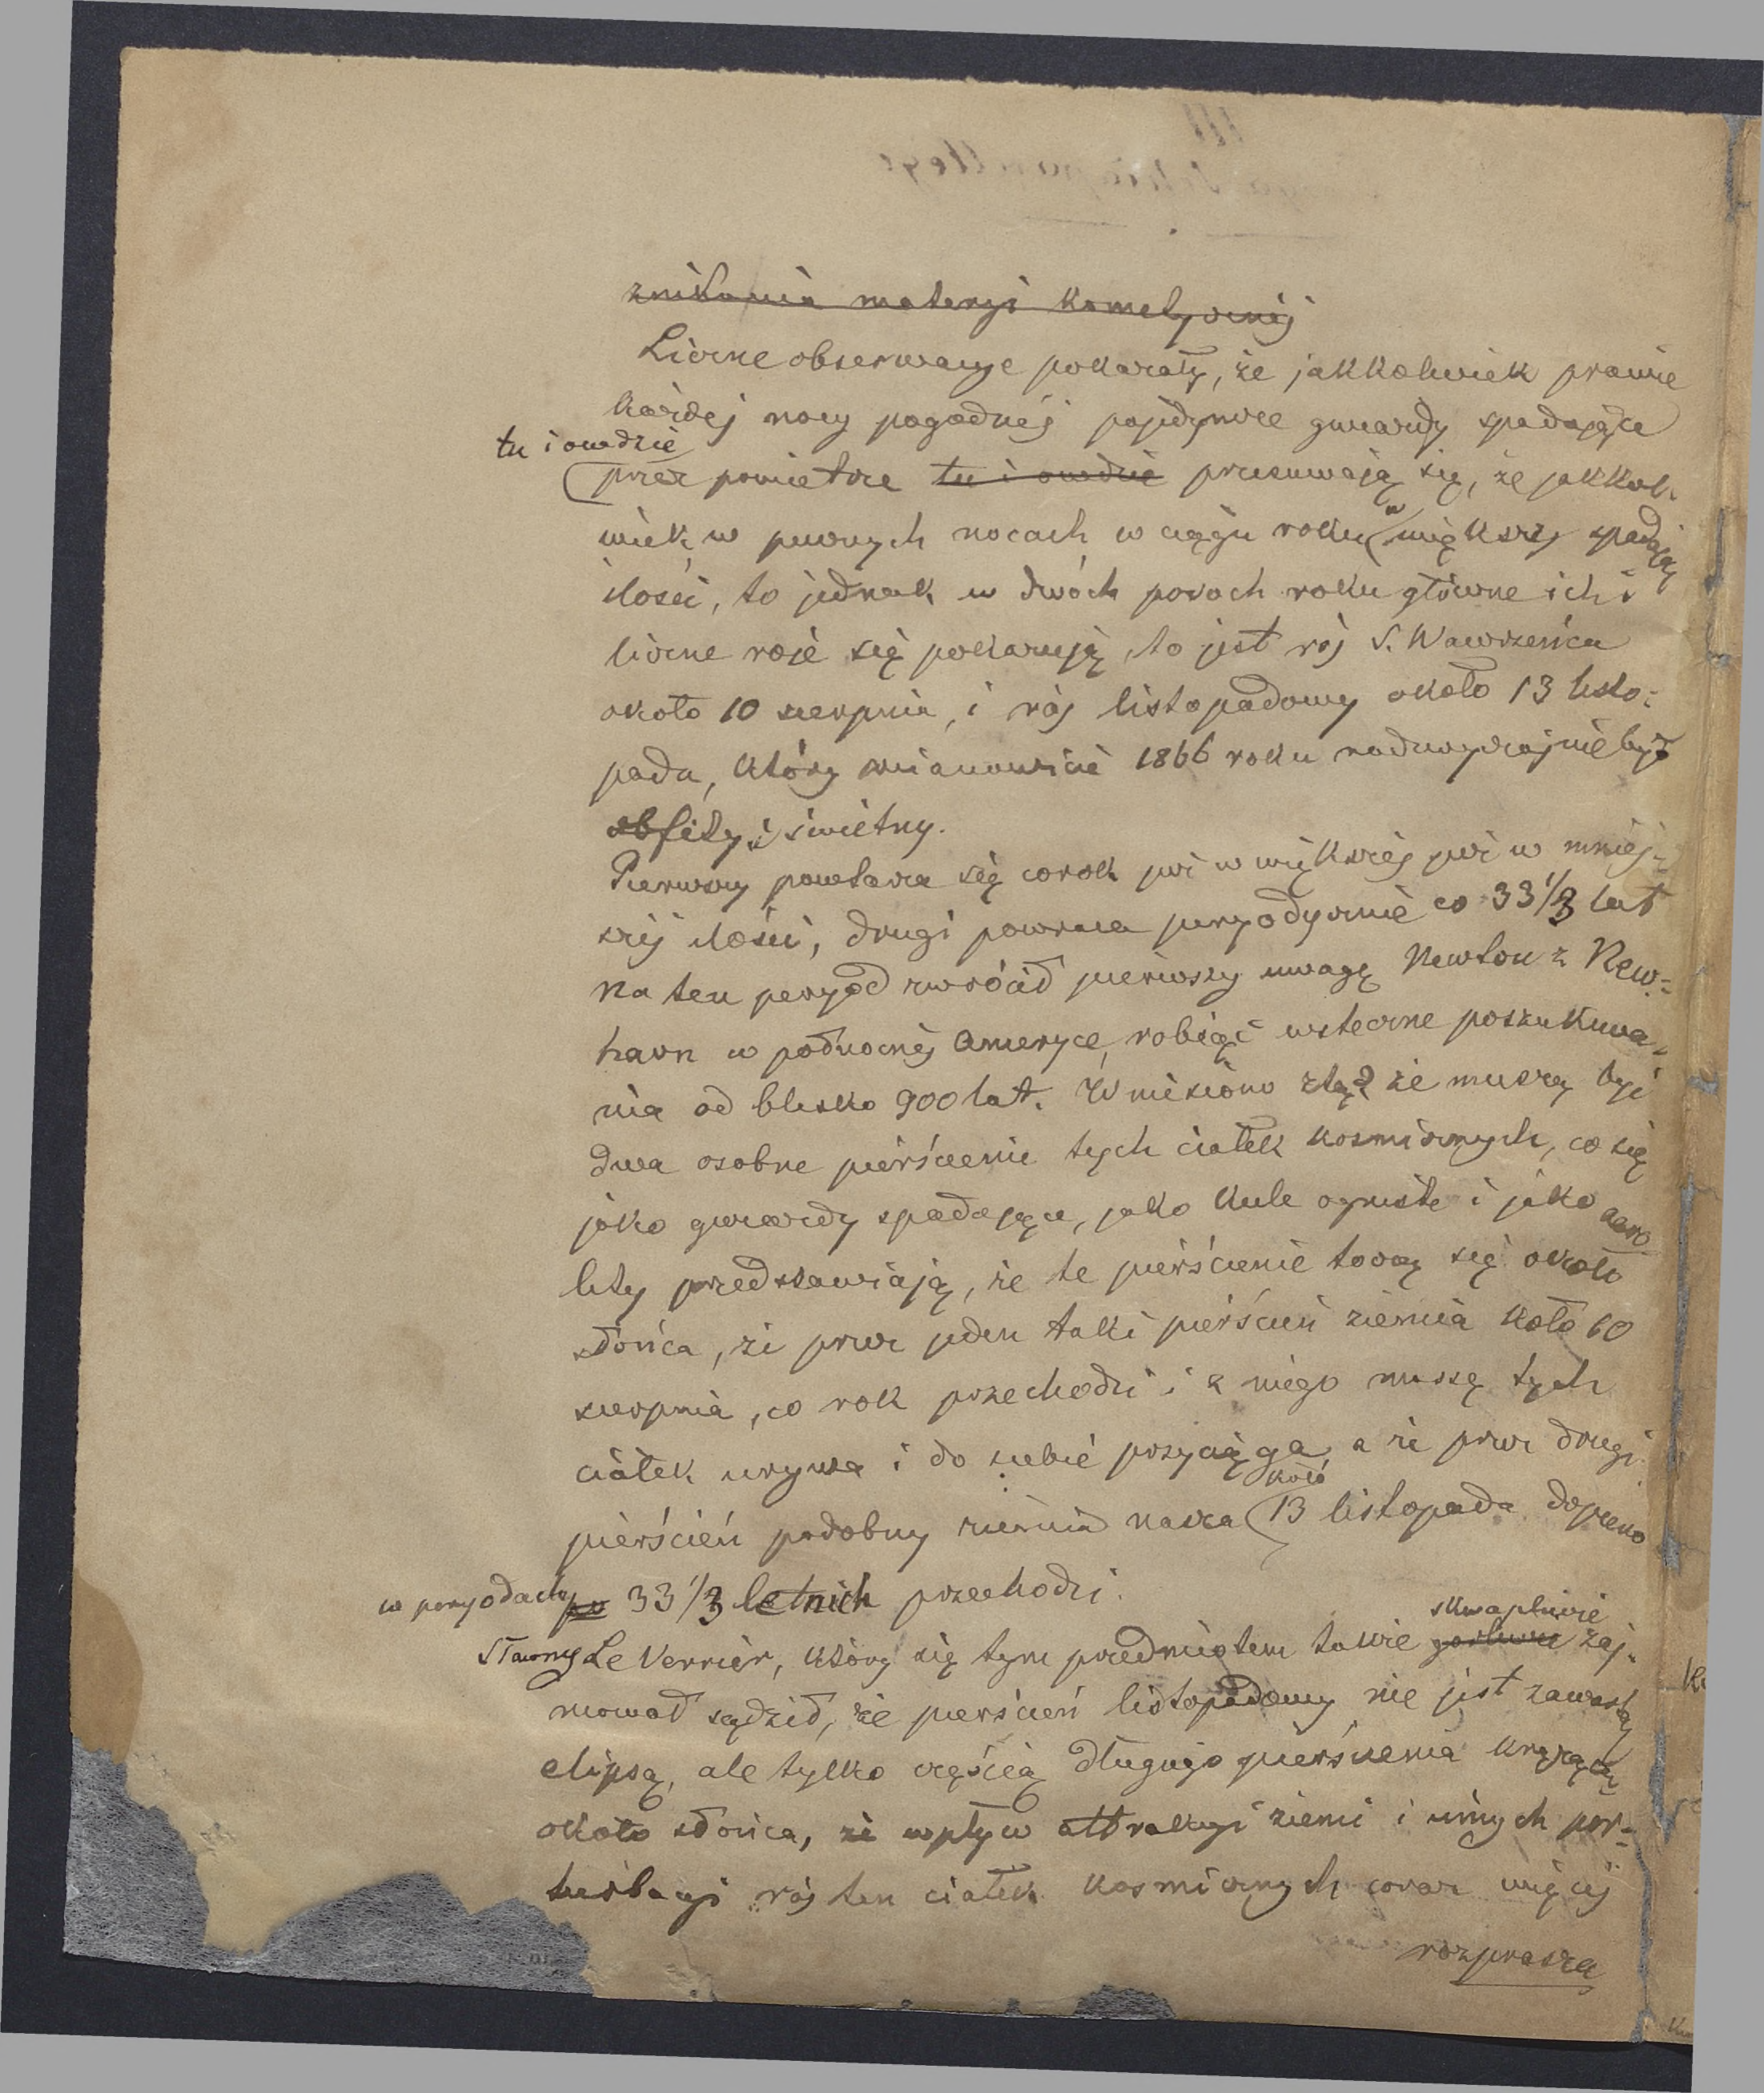 znikania materyi kometycznéj
Liczne obserwacye pokazały, że jakkolwiek prawie
każdej nocy pogodnéj pojedyncze gwiazdy spadające
tu i owdzie
przez powietrze tu i owdzie przesuwają się, że jakkol-
wiek w pewnych nocach w ciągu roku w większéj spadają
ilości, to jednak w dwóch porach roku główne ich i
liczne roje się pokazują, to jest rój S. Wawrzeńca
około 10 sierpnia, i rój listopadowy około 13 listo-
pada, który mianowicie 1866 roku nadzwyczajnie był
obfity i świetny.
Pierwszy powtarza się corok już w większéj już w mniéj-
széj ilości, drugi powraca peryodycznie co 33 1/3 lat
na ten peryod zwrócił pierwszy uwagę Newton z New-
havn w północnéj Ameryce, robiąc wsteczne poszukiwa-
nia od blisko 900 lat. Wniesiono ztąd że muszą być
dwa osobne pierścienie tych ciałek kosmicznych, co się
jako gwiazdy spadające, jako kule ogniste i jako aero-
lity przedstawiają, że te pierścienie toczą się około
słońca, że przez jeden taki pierścień ziemia koło 10
sierpnia, co rok przechodzi i z niego muszę tych
ciałek urywa i do siebie przyciąga, a że przez drugi
koło
pierścień podobny ziemia nasza 13 listopada dopiero
w peryodach po 33 1/3 letnich przechodzi.
skwapliwie
Sławny Le Verrier, który się tym przedmiotem także gorliwie zaj-
mował sądził, że pierścień listopadowy nie jest zawartą
elipsą, ale tylko częścią długiego pierścienia krążącą
około słońca, że wpływ attrakcyi ziemi i innych per-
turbacyi rój ten ciałek kosmicznych coraz więcéj
rozprasza